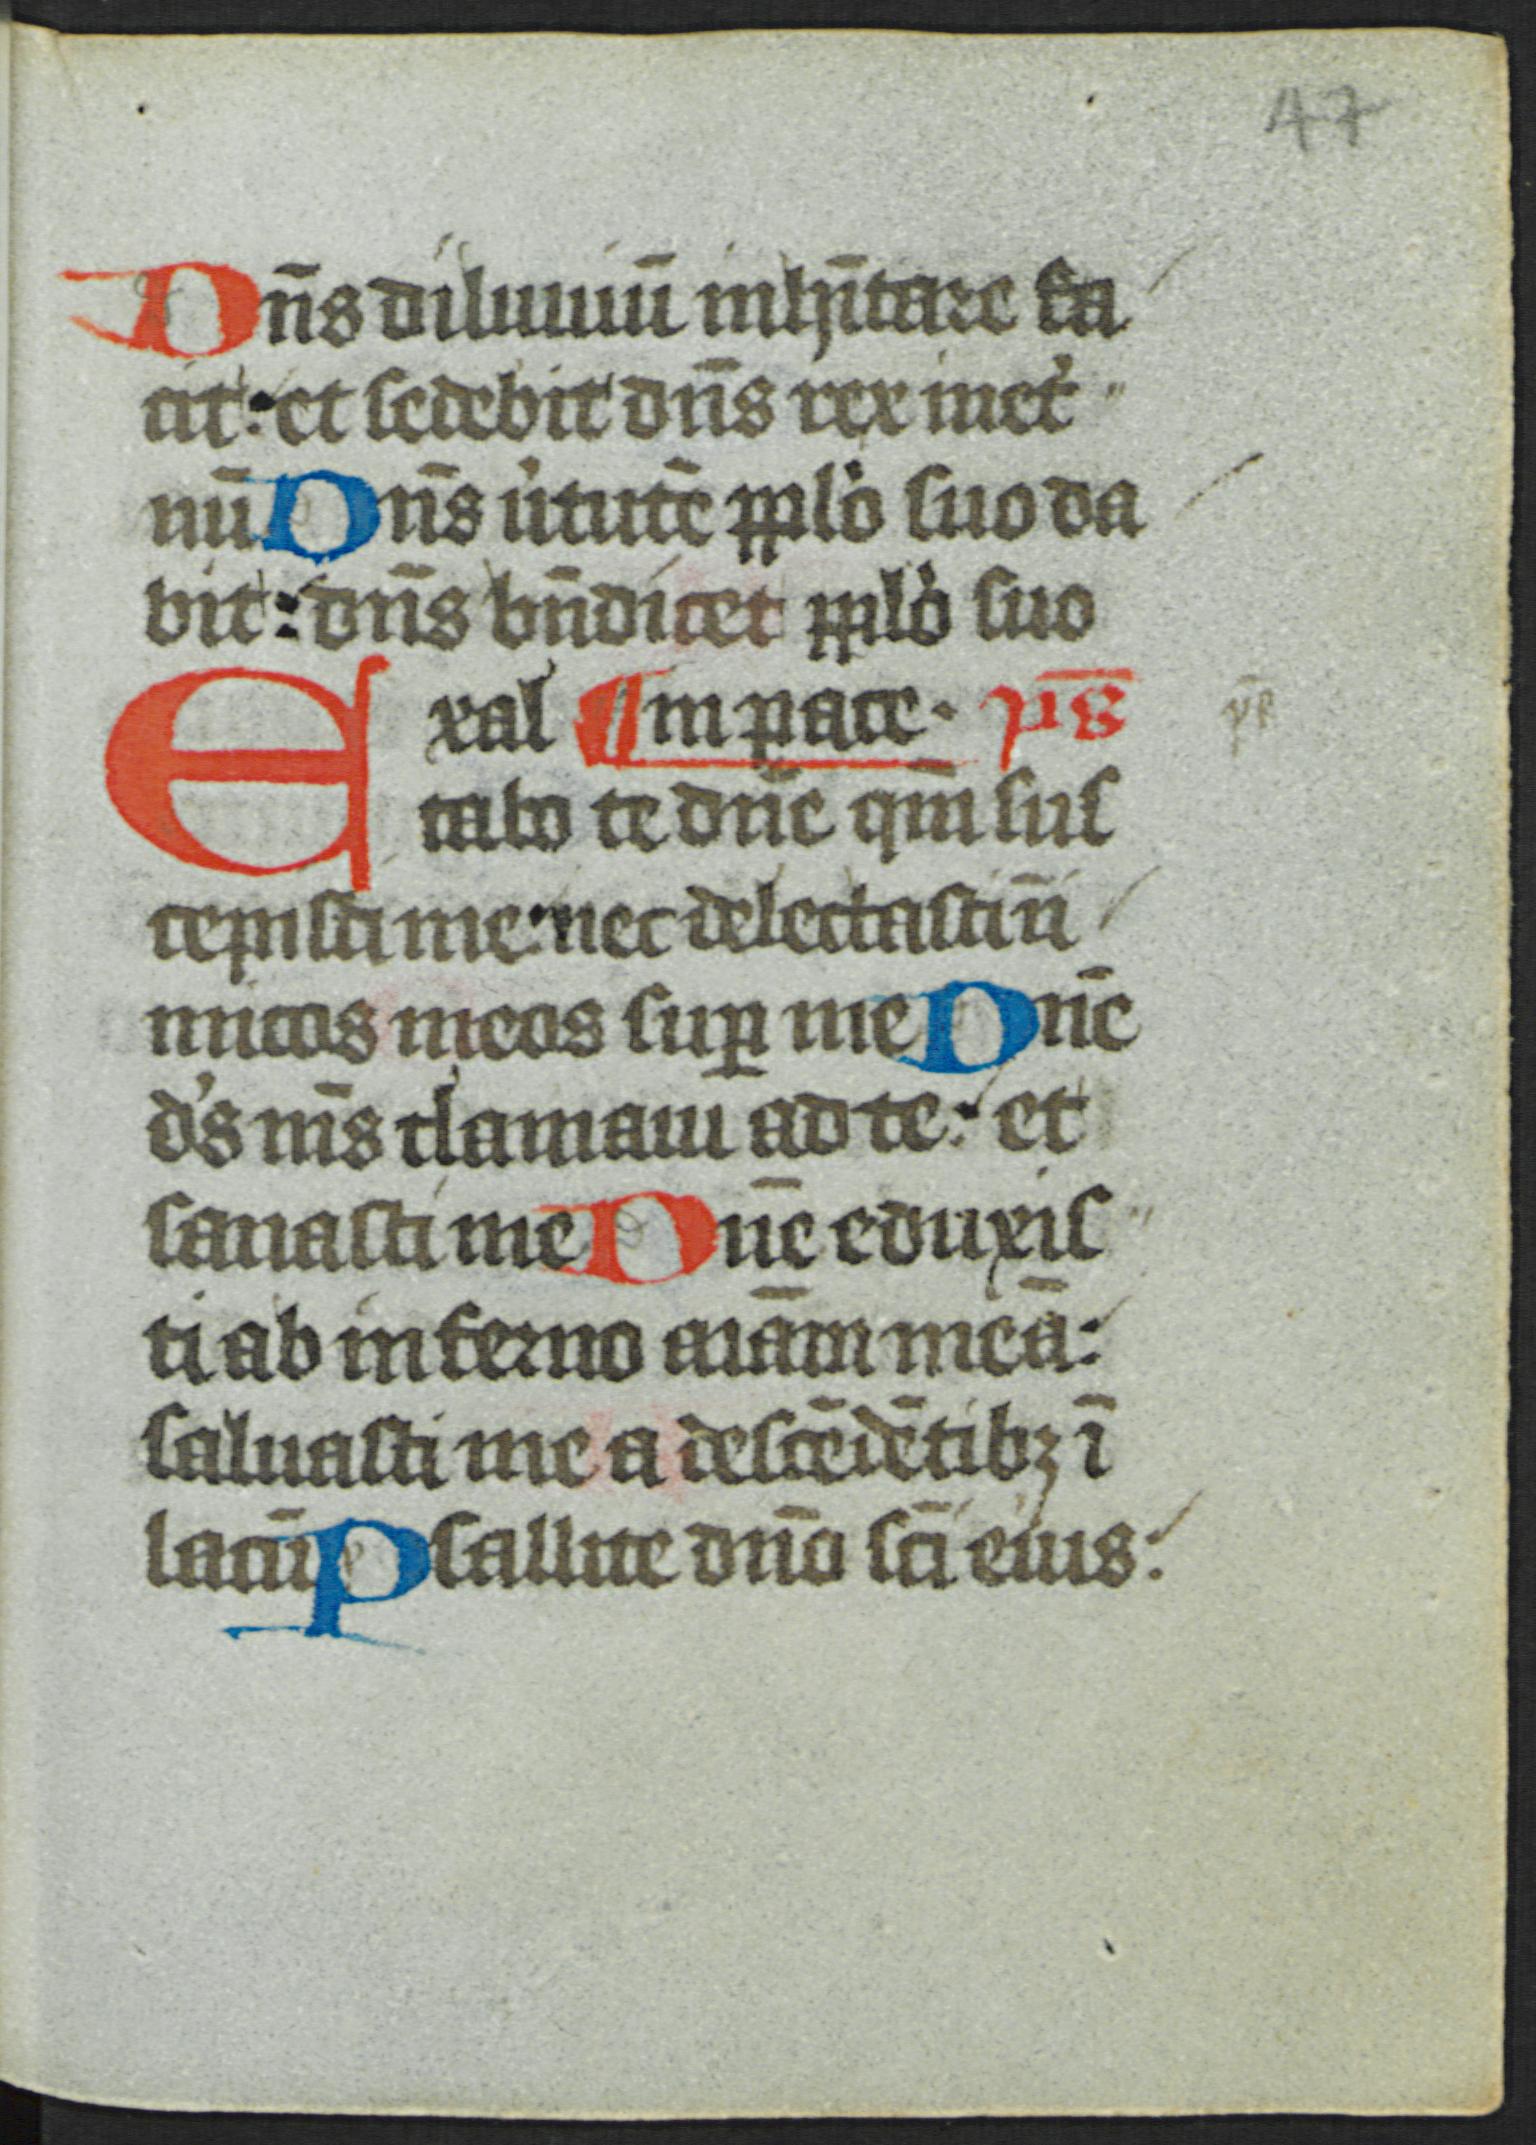 47
Dn̄s diluuiū inhītare fa
cit: et sedebit dn̄s rex in et̉
nū Dn̄s ůtutē pplo̍ suo da
bit: dn̄s bn̄dicet pplo̍ suo
Exal ¶ In pace. ps̄
tabo te dn̄e qm̄ sus
cepisti me: nec delectasti in̄
micos meos suꝑ me Dn̄e
d's m̄s clamaui ad te: et
sanasti me Dn̄e eduxis
ti ab inferno aīam meā:
saluasti me a descēdētibꝫ ī
lacū Psallite dn̄o sc̄i eius: